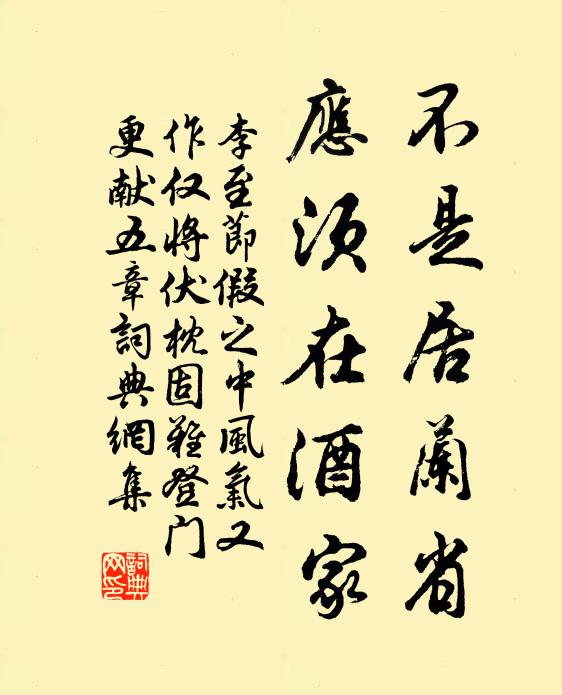 不是居蘭省
應須在酒家
李至節假之中風氣又
作仅將伏枕固難登门
更献五章詞典網集
詞典网印